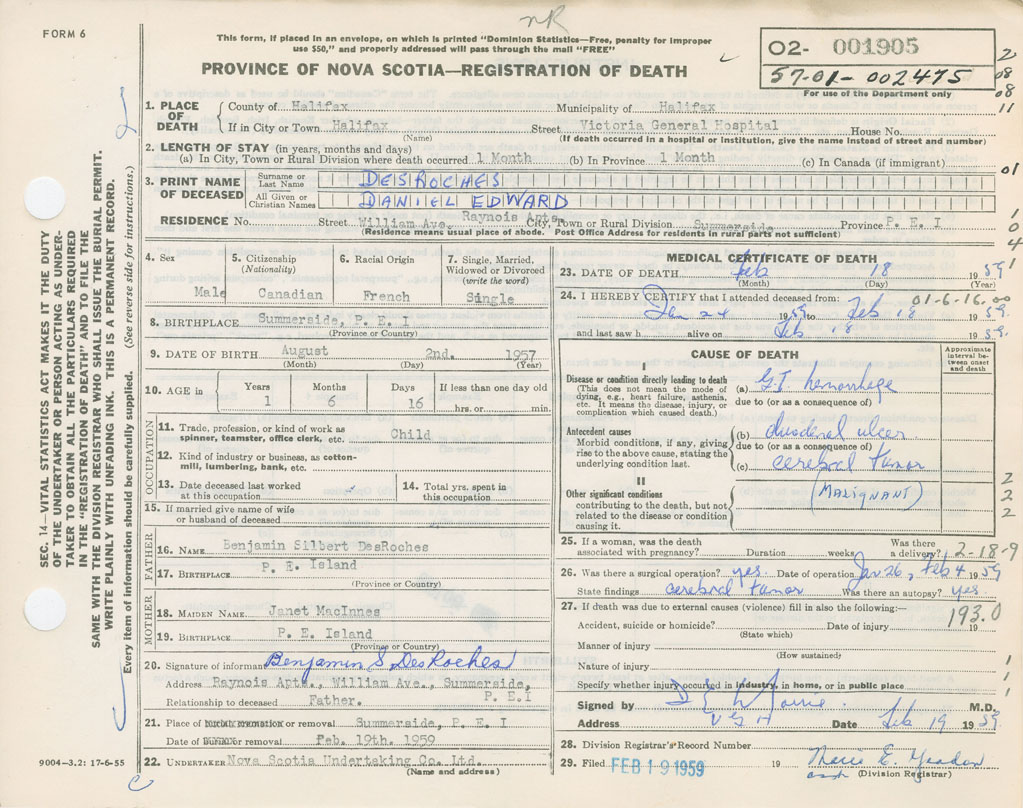 nR
FORM 6
This form, if placed in an envelope, on which is printed "Dominion Statistics—Free, penalty for improper
use $50," and properly addressed will pass through the mail "FREE"
02- 001905
57-01-002475
For use of the Department only
2
08
08
11
PROVINCE OF NOVA SCOTIA—REGISTRATION OF DEATH
1. PLACE OF DEATH
County of Halifax Municipality of Halifax
If in City or Town Halifax Street Victoria General Hospital House No.
(Name) (If death occurred in a hospital or institution, give the name instead of street and number)
2. LENGTH OF STAY (in years, months and days)
(a) In City, Town or Rural Division where death occurred 1 Month (b) In Province 1 Month (c) In Canada (if immigrant)
01
3. PRINT NAME OF DECEASED
Surname or Last Name DESROCHES
All Given or Christian Names DANIEL EDWARD
RESIDENCE No. Street William Ave. Raynois Apts. City, Town or Rural Division Summerside Province P. E. I
(Residence means usual place of abode. Post Office Address for residents in rural parts not sufficient)
1
0
4
4. Sex Male
5. Citizenship (Nationality) Canadian
6. Racial Origin French
7. Single, Married, Widowed or Divorced (write the word) Single
8. BIRTHPLACE Summerside, P. E. I
(Province or Country)
9. DATE OF BIRTH August 2nd. 1957
(Month) (Day) (Year)
10. AGE in Years 1 Months 6 Days 16 If less than one day old hrs. or min.
OCCUPATION
11. Trade, profession, or kind of work as spinner, teamster, office clerk, etc. Child
12. Kind of industry or business, as cotton-mill, lumbering, bank, etc.
13. Date deceased last worked at this occupation
14. Total yrs. spent in this occupation
15. If married give name of wife or husband of deceased
FATHER
16. NAME Benjamin Silbert DesRoches
17. BIRTHPLACE P. E. Island
(Province or Country)
MOTHER
18. MAIDEN NAME Janet MacInnes
19. BIRTHPLACE P. E. Island
(Province or Country)
20. Signature of informant Benjamin S. DesRoches
Address Raynois Apts., William Ave., Summerside,
P. E. I
Relationship to deceased Father.
21. Place of burial cremation or removal Summerside, P. E. I
Date of burial or removal Feb. 19th. 1959
22. UNDERTAKER Nova Scotia Undertaking Co. Ltd.
(Name and address)
MEDICAL CERTIFICATE OF DEATH
23. DATE OF DEATH Feb 18 1959
(Month) (Day) (Year)
1
24. I HEREBY CERTIFY that I attended deceased from: 01-6-16.00
Jan 24 1959 to Feb 18 1959
and last saw h alive on Feb 18 1959.
CAUSE OF DEATH
Approximate interval between onset and death
I
Disease or condition directly leading to death
(This does not mean the mode of dying, e.g., heart failure, asthenia, etc. It means the disease, injury, or complication which caused death.)
(a) G.I. hemorrhage
due to (or as a consequence of)
Antecedent causes
Morbid conditions, if any, giving rise to the above cause, stating the underlying condition last.
(b) duodenal ulcer
due to (or as a consequence of)
(c) cerebral tumor
II
(MALIGNANT)
Other significant conditions contributing to the death, but not related to the disease or condition causing it.
2
2
2
25. If a woman, was the death associated with pregnancy? Duration weeks Was there a delivery? 2-18-9
26. Was there a surgical operation? yes. Date of operation Jan 26, Feb 4 1959
State findings cerebral tumor Was there an autopsy? yes
27. If death was due to external causes (violence) fill in also the following:—
193.0
Accident, suicide or homicide? Date of injury 19
(State which)
Manner of injury
(How sustained)
Nature of injury
Specify whether injury occurred in industry, in home, or in public place
1
1
1
Signed by M.D.
Address V G H Date Feb 19 1959.
28. Division Registrar's Record Number
29. Filed FEB 19 1959 19
(Division Registrar)
SEC. 14—VITAL STATISTICS ACT MAKES IT THE DUTY
OF THE UNDERTAKER OR PERSON ACTING AS UNDER-
TAKER TO OBTAIN ALL THE PARTICULARS REQUIRED
IN THE "REGISTRATION OF DEATH" AND TO FILE THE
SAME WITH THE DIVISION REGISTRAR WHO SHALL ISSUE THE BURIAL PERMIT.
WRITE PLAINLY WITH UNFADING INK. THIS IS A PERMANENT RECORD.
Every item of information should be carefully supplied. (See reverse side for instructions.)
9004—3.2: 17-6-55